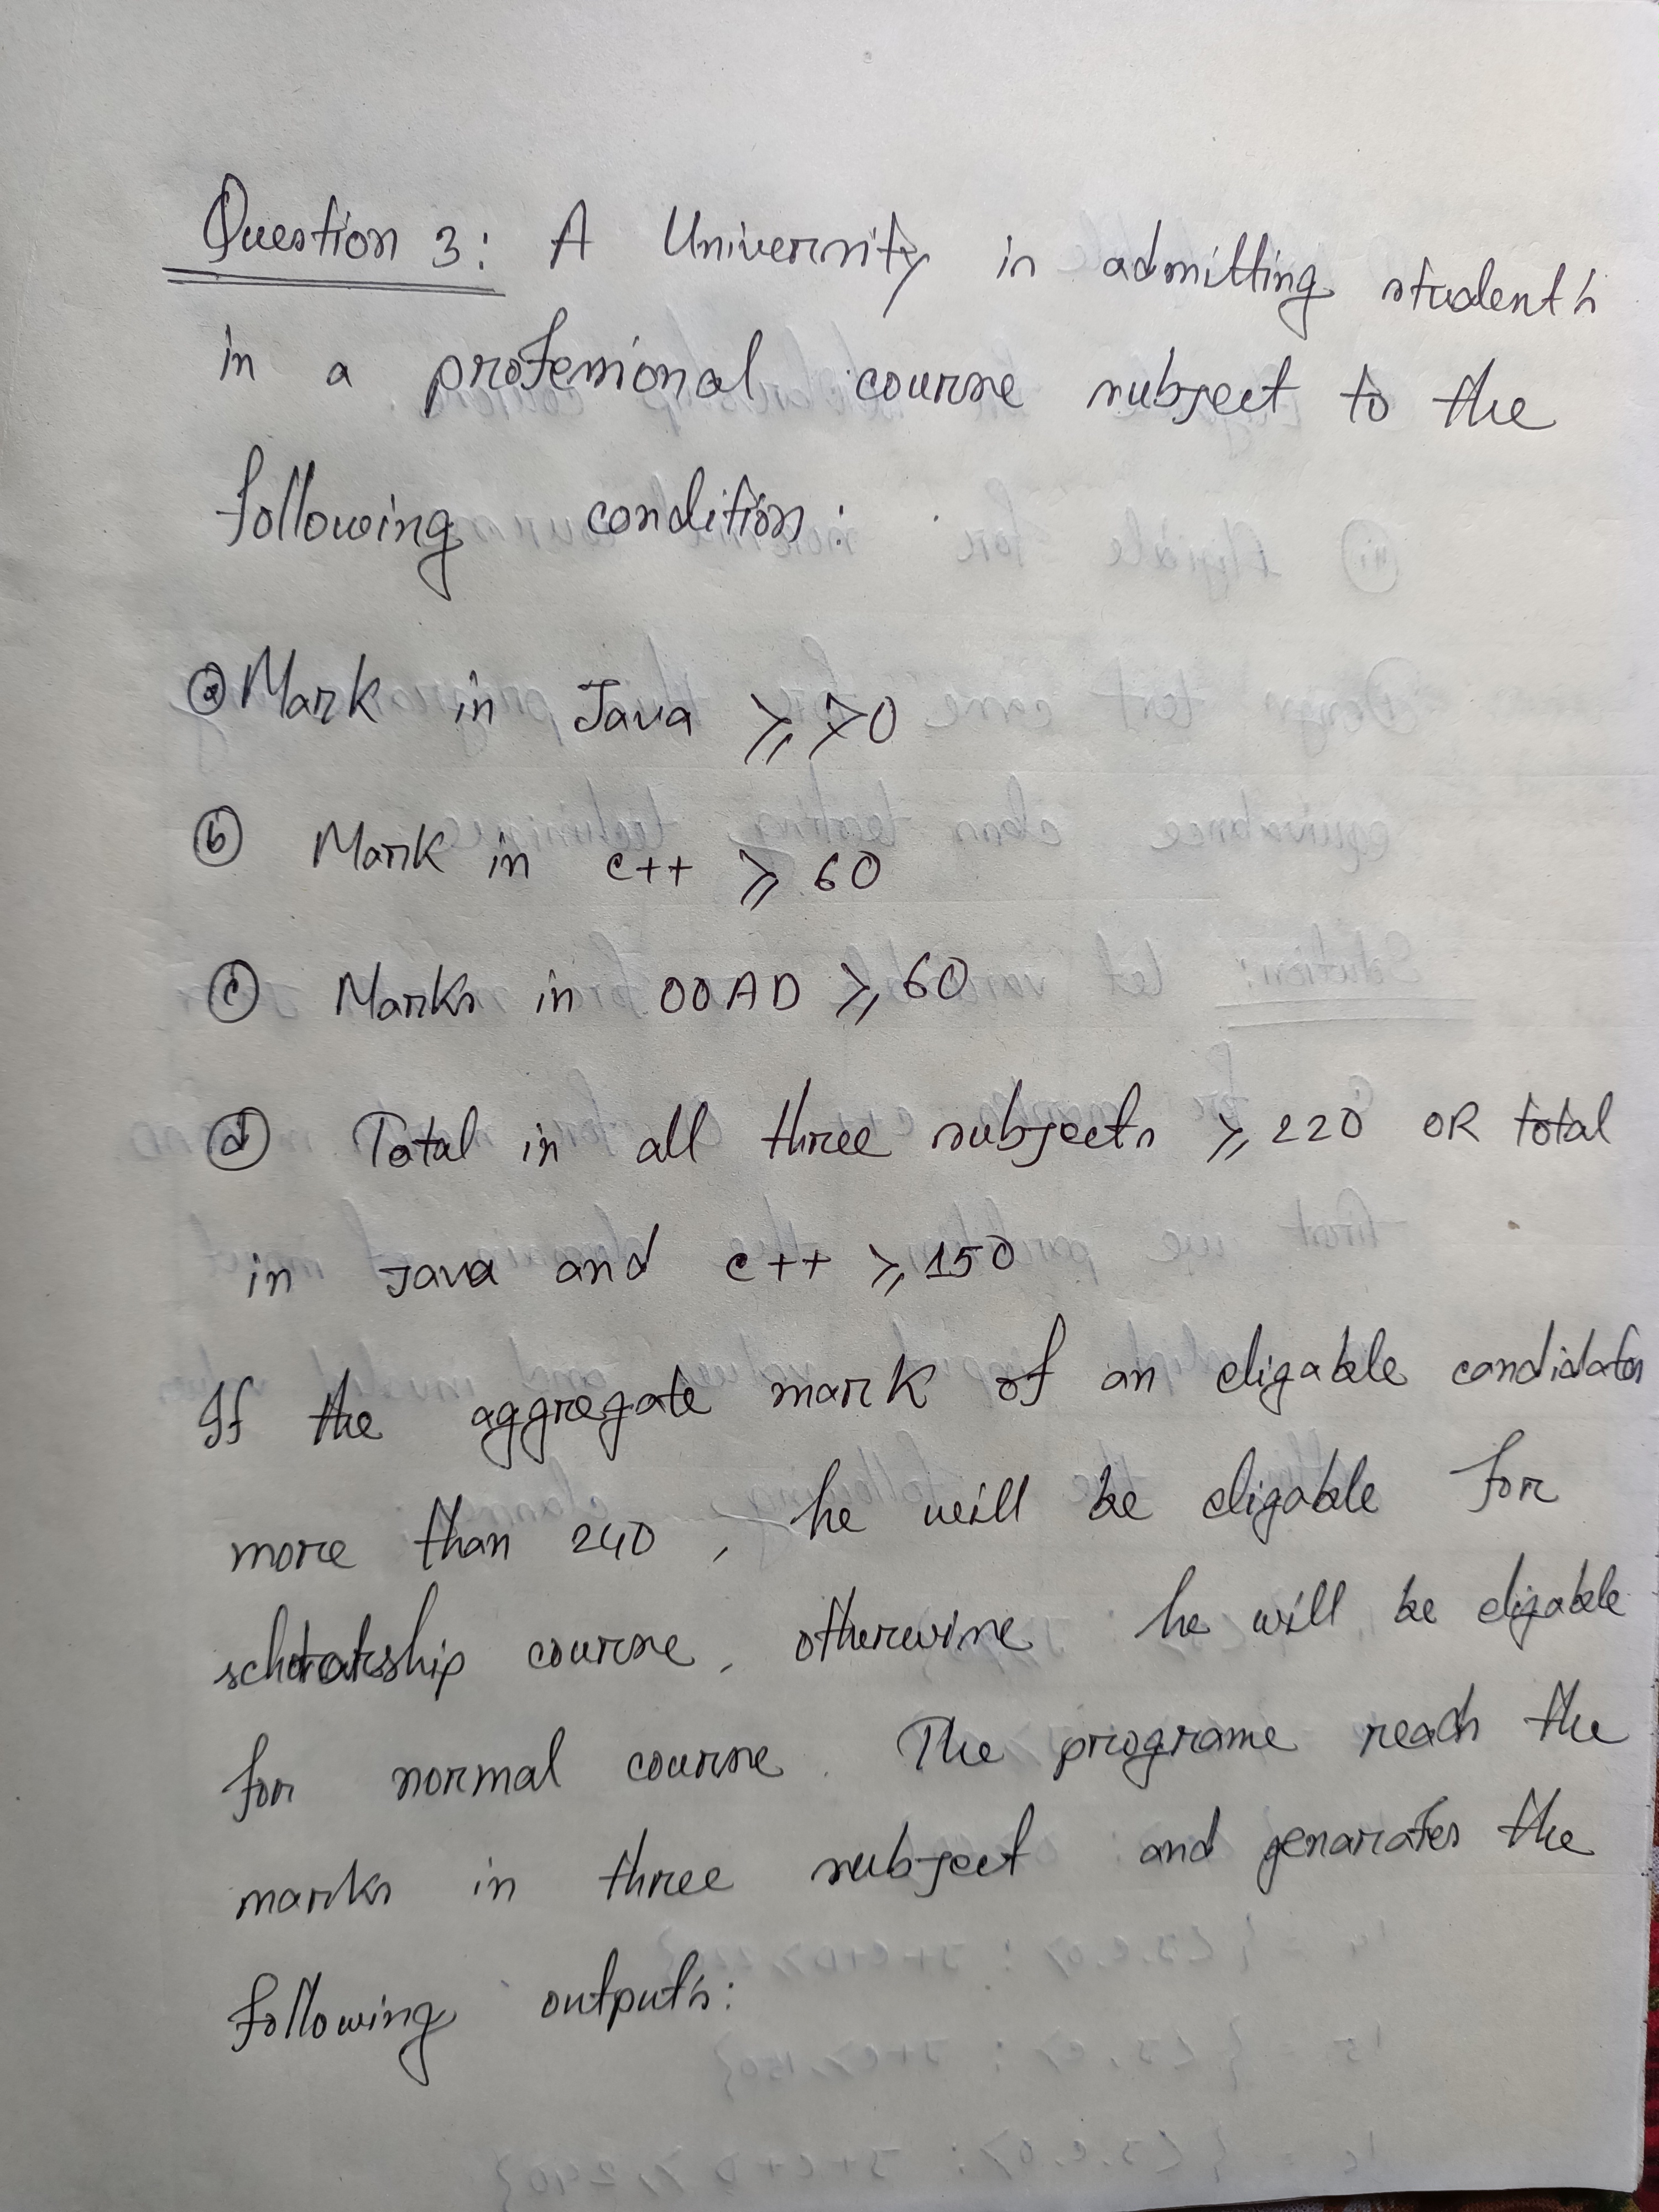 Question 3: A University is admitting students
in a professional course subject to the
following condition:
ⓐ Mark in Java ⩾ 70
ⓑ Mark in c++ ⩾ 60
ⓒ Marks in OOAD ⩾ 60
ⓓ Total in all three subjects ⩾ 220 OR total
in Java and c++ ⩾ 150
If the aggregate mark of an eligable candidates
more than 240, he will be eligable for
scholarship course, otherwise he will be eligable
for normal course. The programe reads the
marks in three subject and genarates the
following outputs: